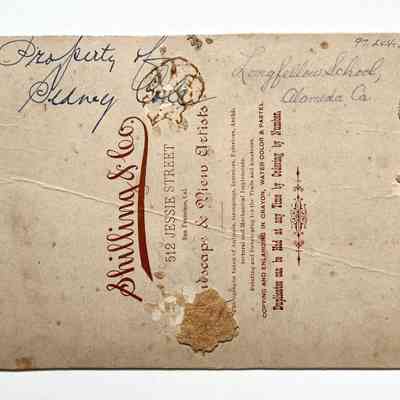 Property of
Sidney Cole
Longfellow School,
Alameda Ca.
Shilling & Co.
512 JESSIE STREET
San Francisco, Cal.
& View Artists
Photographs taken of Animals, Groupings, Interiors, Exteriors,
and Mechanical Implements.
Printing and Developing for the Trade and Amateurs.
COPYING AND ENLARGING IN CRAYON, WATER COLOR & PASTEL.
Duplicates can be Had at any time by Ordering by Number.